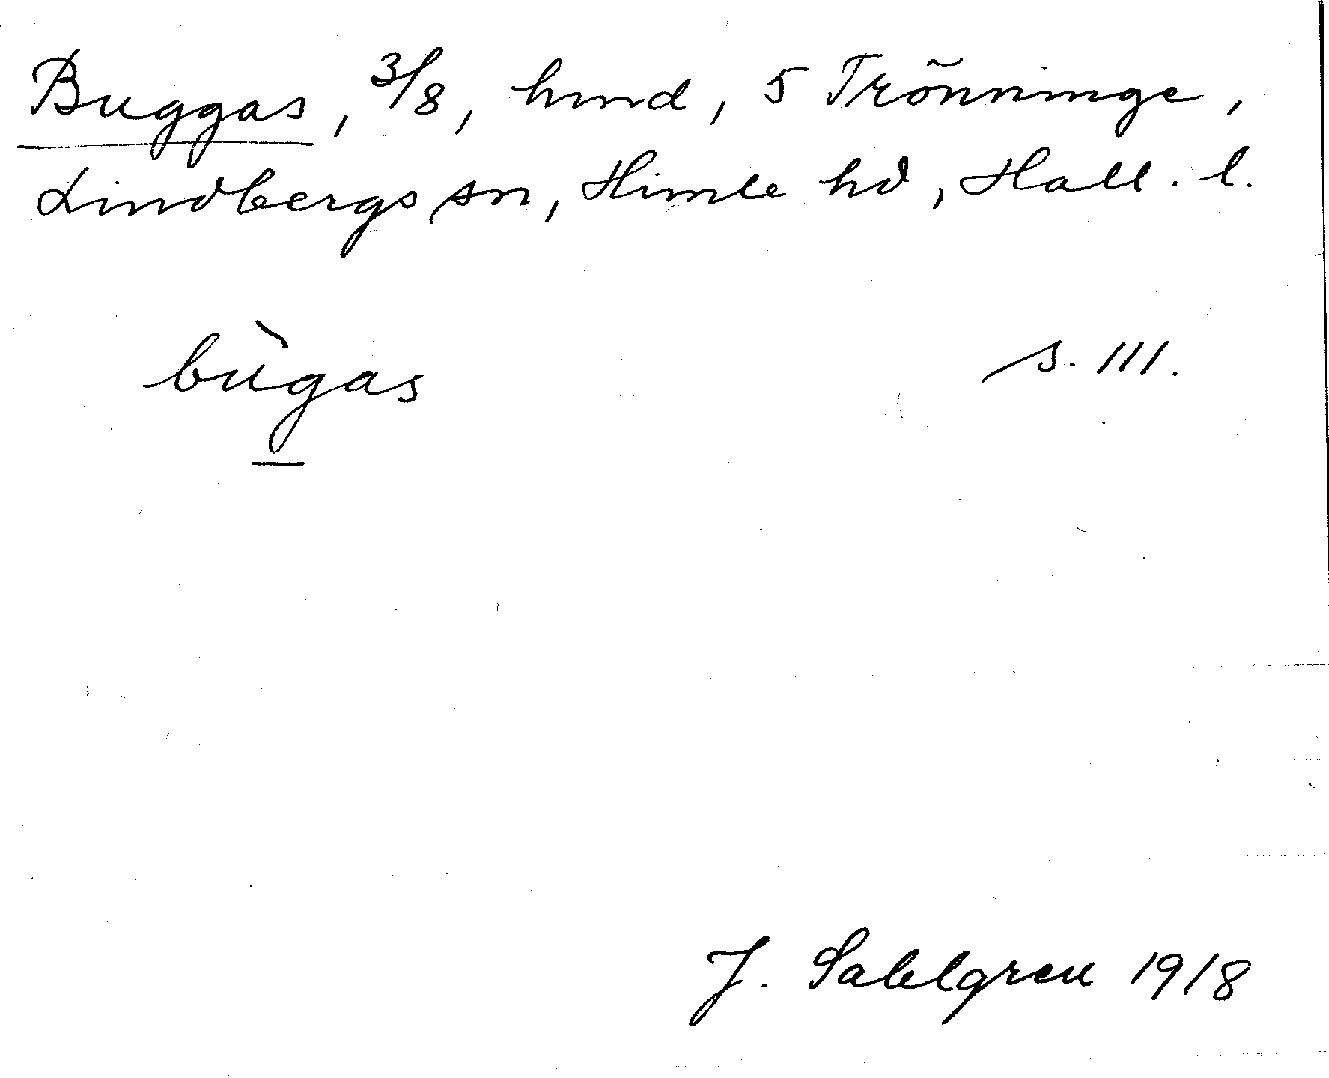 Buggas, 3/8, hmd, 5 Trönninge,
Lindbergs sn, Himle hd, Hall. l.
bùgas s. 111.
J. Sahlgren 1918